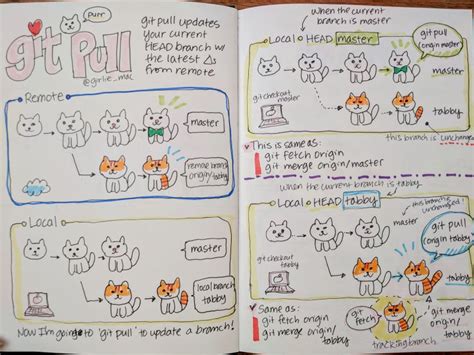 purr
git pull
@girlie_mac
git pull updates
your current
HEAD branch w/
the latest Δs
from remote
Remote
master
remote branch
origin/tabby
Local
master
local branch
tabby
Now I'm going to 'git pull' to update a branch!
when the current
branch is master
Local HEAD master
git pull
origin master
master
git checkout
master
tabby
this branch is unchanged
This is same as:
git fetch origin
git merge origin/master
when the current branch is tabby
Local HEAD tabby
this branch is
unchanged!
master
git pull
origin tabby
git checkout
tabby
tabby
Same as:
git fetch origin
git merge origin/
tabby
git
fetch
git merge
origin/
tabby
tracking branch